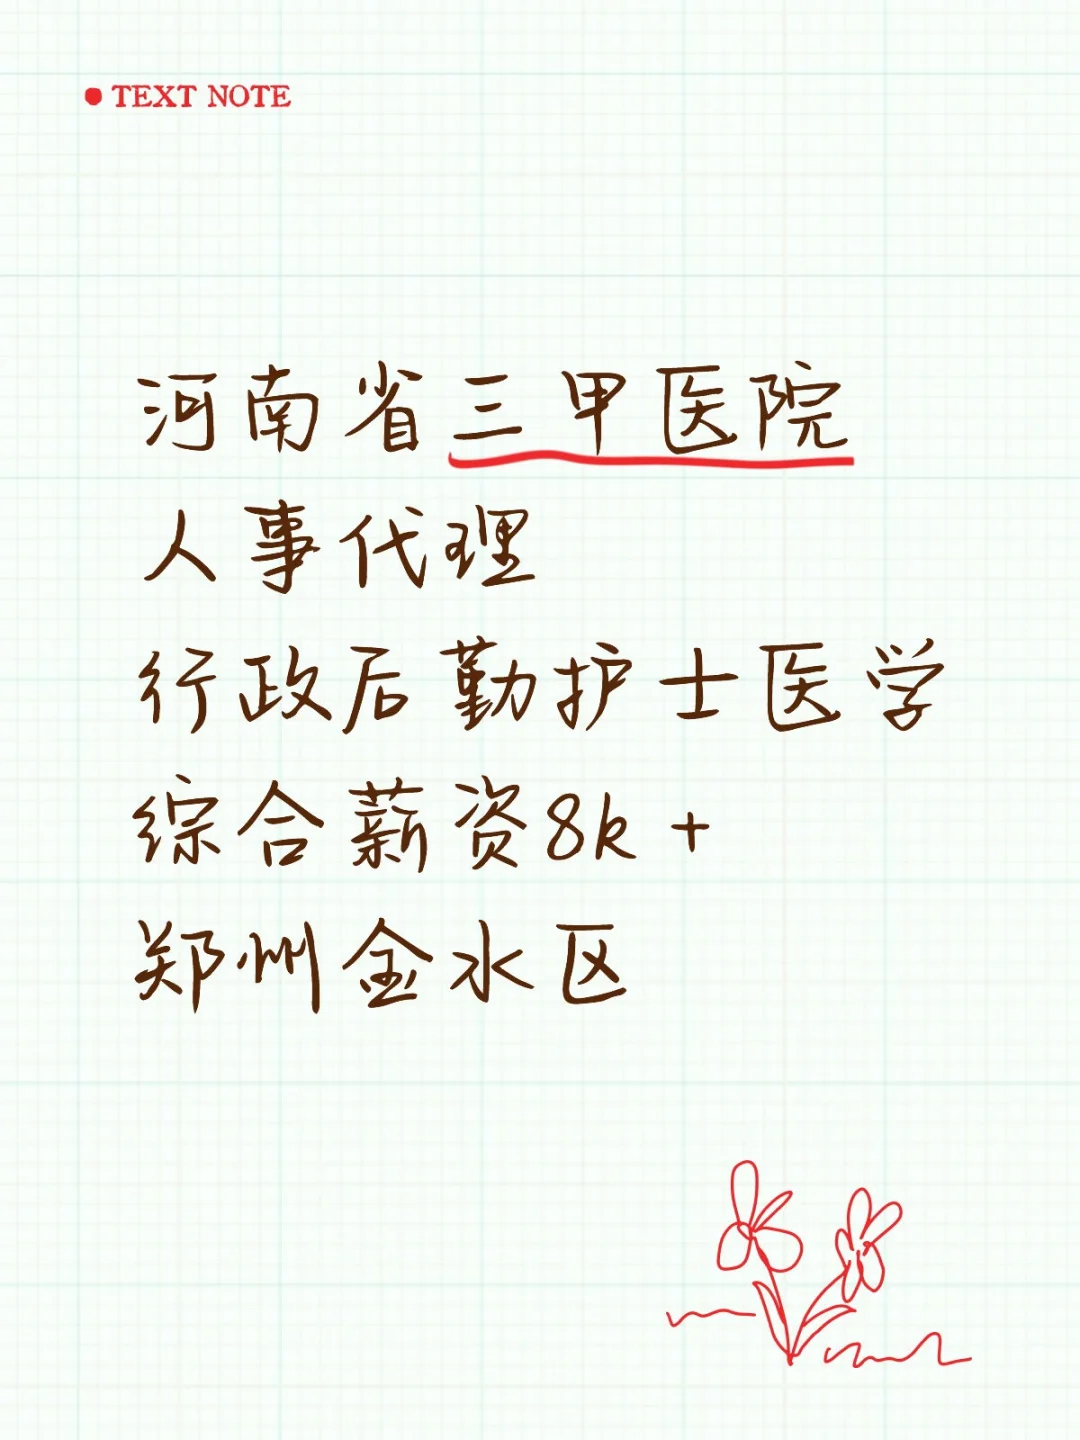 TEXT NOTE
河南省三甲医院
人事代理
行政后勤护士医学
综合薪资8k+
郑州金水区